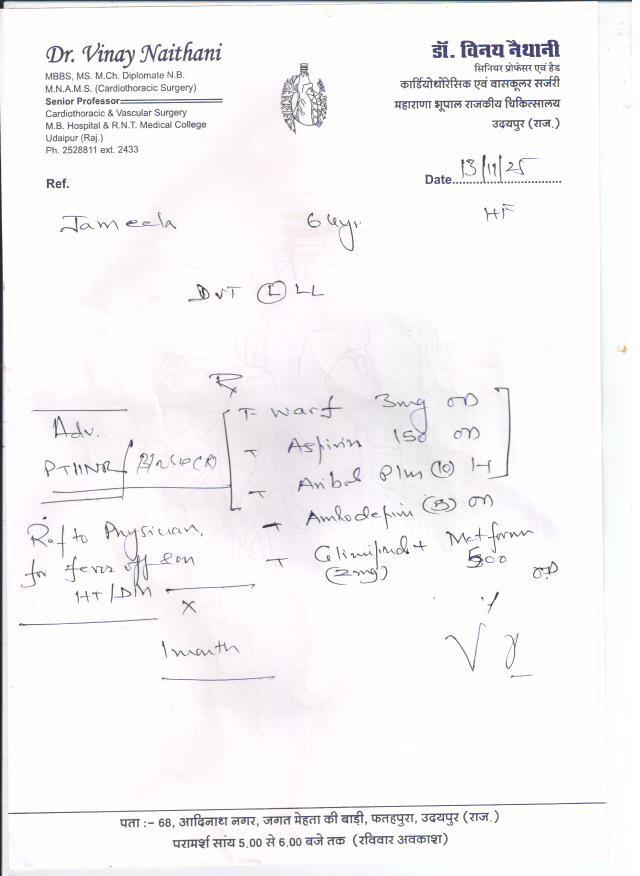 Dr. Vinay Naithani
MBBS, MS. M.Ch. Diplomate N.B.
M.N.A.M.S. (Cardiothoracic Surgery)
Senior Professor
Cardiothoracic & Vascular Surgery
M.B. Hospital & R.N.T. Medical College
Udaipur (Raj.)
Ph. 2528811 ext. 2433
डॉ. विनय नैथानी
सिनियर प्रोफेसर एवं हैड
कार्डियोथोरेसिक एवं वासकूलर सर्जरी
महाराणा भूपाल राजकीय चिकित्सालय
उदयपुर (राज.)
Ref.
Date 13/11/25
Jameela
DVT (L) LL
Rx
T- Warf 3mg OD
T Aspirin 150 OD
T Plus (10) H
Adv.
PT/INR
T
Ref to Physician,
for
HT/DM
T + Metformin
(2mg) 500 OD
x
1 month
पता :– 68, आदिनाथ नगर, जगत मेहता की बाड़ी, फतहपुरा, उदयपुर (राज.)
परामर्श सांय 5.00 से 6.00 बजे तक (रविवार अवकाश)